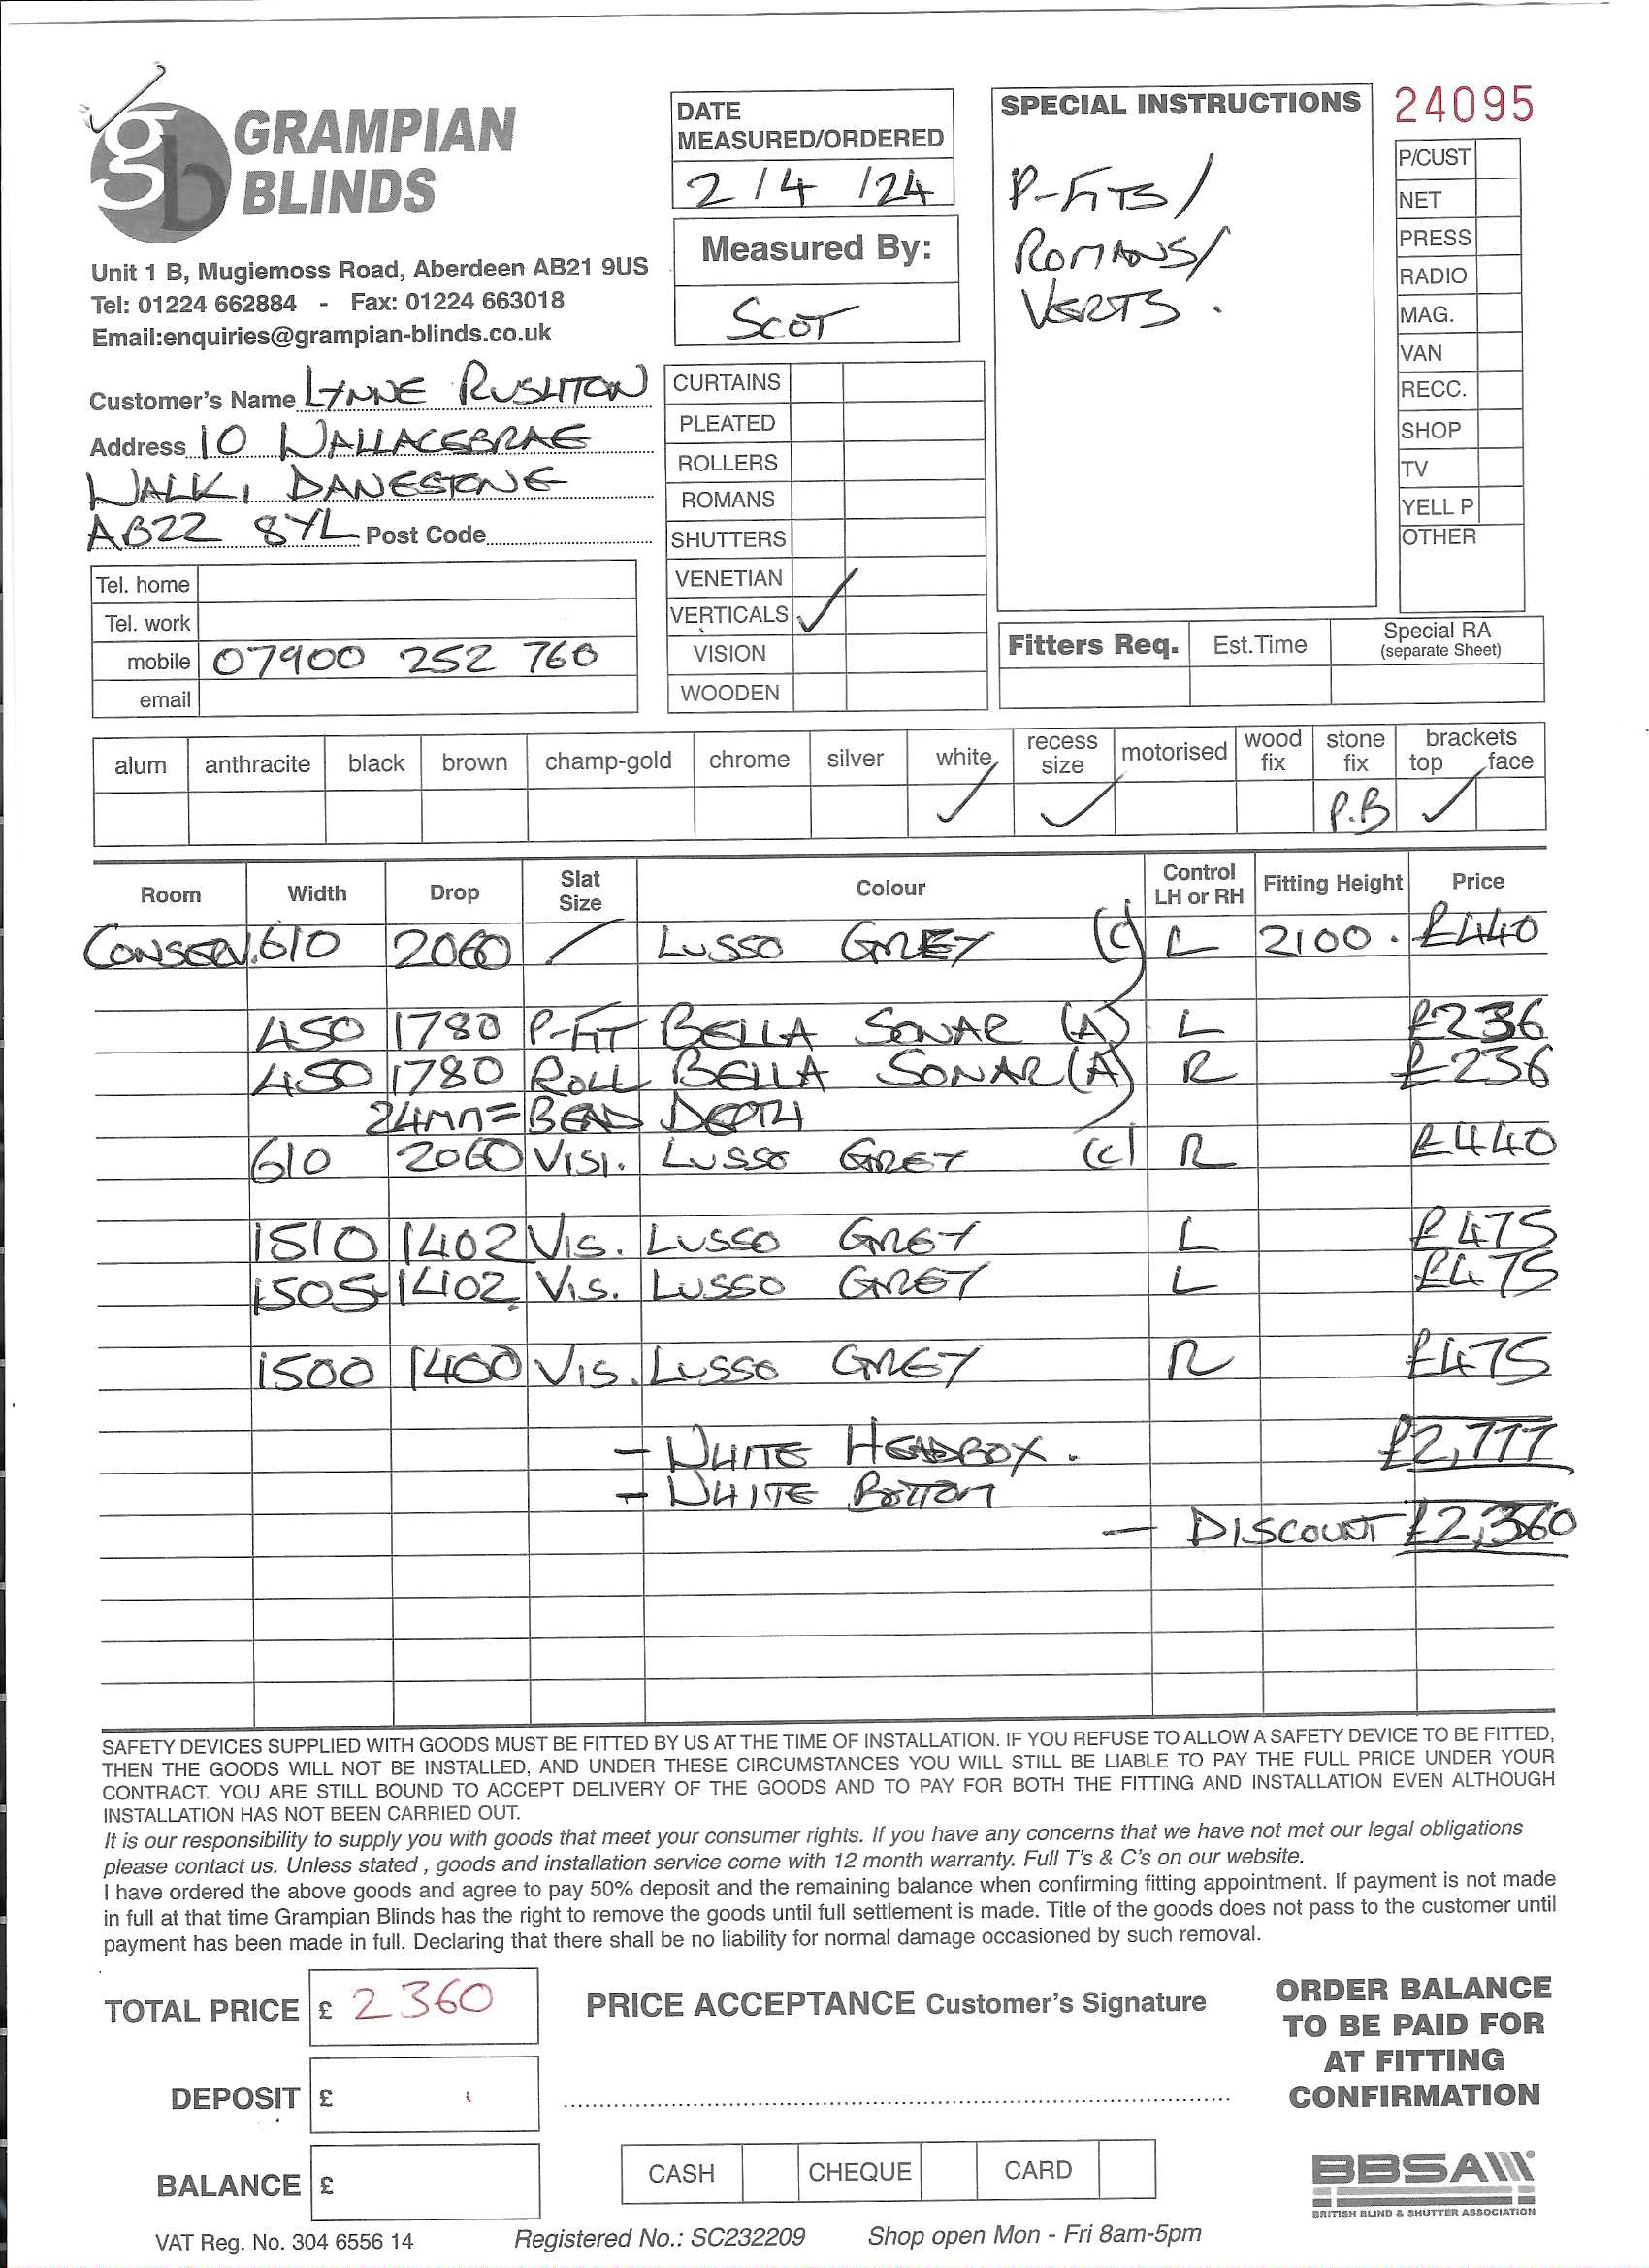 GRAMPIAN
BLINDS
Unit 1 B, Mugiemoss Road, Aberdeen AB21 9US
Tel: 01224 662884 - Fax: 01224 663018
Email:enquiries@grampian-blinds.co.uk
DATE
MEASURED/ORDERED
2 / 4 / 24
Measured By:
SCOT
SPECIAL INSTRUCTIONS
P-FITS/
ROMANS/
VERTS.
24095
P/CUST
NET
PRESS
RADIO
MAG.
VAN
RECC.
SHOP
TV
YELL P
OTHER
Customer's Name LYNNE RUSHTON
Address 10 WALLACEBRAE
WALK, DANESTONE
AB22 8YL Post Code
Tel. home
Tel. work
mobile 07900 252 760
email
CURTAINS
PLEATED
ROLLERS
ROMANS
SHUTTERS
VENETIAN
VERTICALS ✓
VISION
WOODEN
Fitters Req. Est.Time Special RA
(separate Sheet)
alum anthracite black brown champ-gold chrome silver white recess size motorised wood fix stone fix brackets top face
✓ ✓ P.B ✓
Room Width Drop Slat Size Colour Control LH or RH Fitting Height Price
CONSERV. 610 2060 / LUSSO GREY (C) L 2100. £440
450 1780 P-FIT BELLA SONAR (A) L £236
450 1780 ROLL BELLA SONAR (A) R £236
24mm = BEAD DEPTH
610 2060 VISI. LUSSO GREY (C) R £440
1510 1402 VIS. LUSSO GREY L £475
1505 1402 VIS. LUSSO GREY L £475
1500 1400 VIS. LUSSO GREY R £475
- WHITE HEADBOX. £2,777
- WHITE BOTTOM
- DISCOUNT £2,360
SAFETY DEVICES SUPPLIED WITH GOODS MUST BE FITTED BY US AT THE TIME OF INSTALLATION. IF YOU REFUSE TO ALLOW A SAFETY DEVICE TO BE FITTED,
THEN THE GOODS WILL NOT BE INSTALLED, AND UNDER THESE CIRCUMSTANCES YOU WILL STILL BE LIABLE TO PAY THE FULL PRICE UNDER YOUR
CONTRACT. YOU ARE STILL BOUND TO ACCEPT DELIVERY OF THE GOODS AND TO PAY FOR BOTH THE FITTING AND INSTALLATION EVEN ALTHOUGH
INSTALLATION HAS NOT BEEN CARRIED OUT.
It is our responsibility to supply you with goods that meet your consumer rights. If you have any concerns that we have not met our legal obligations
please contact us. Unless stated , goods and installation service come with 12 month warranty. Full T's & C's on our website.
I have ordered the above goods and agree to pay 50% deposit and the remaining balance when confirming fitting appointment. If payment is not made
in full at that time Grampian Blinds has the right to remove the goods until full settlement is made. Title of the goods does not pass to the customer until
payment has been made in full. Declaring that there shall be no liability for normal damage occasioned by such removal.
TOTAL PRICE £ 2360
PRICE ACCEPTANCE Customer's Signature
ORDER BALANCE
TO BE PAID FOR
AT FITTING
CONFIRMATION
DEPOSIT £
BALANCE £
CASH CHEQUE CARD
BBSA
BRITISH BLIND & SHUTTER ASSOCIATION
VAT Reg. No. 304 6556 14 Registered No.: SC232209 Shop open Mon - Fri 8am-5pm